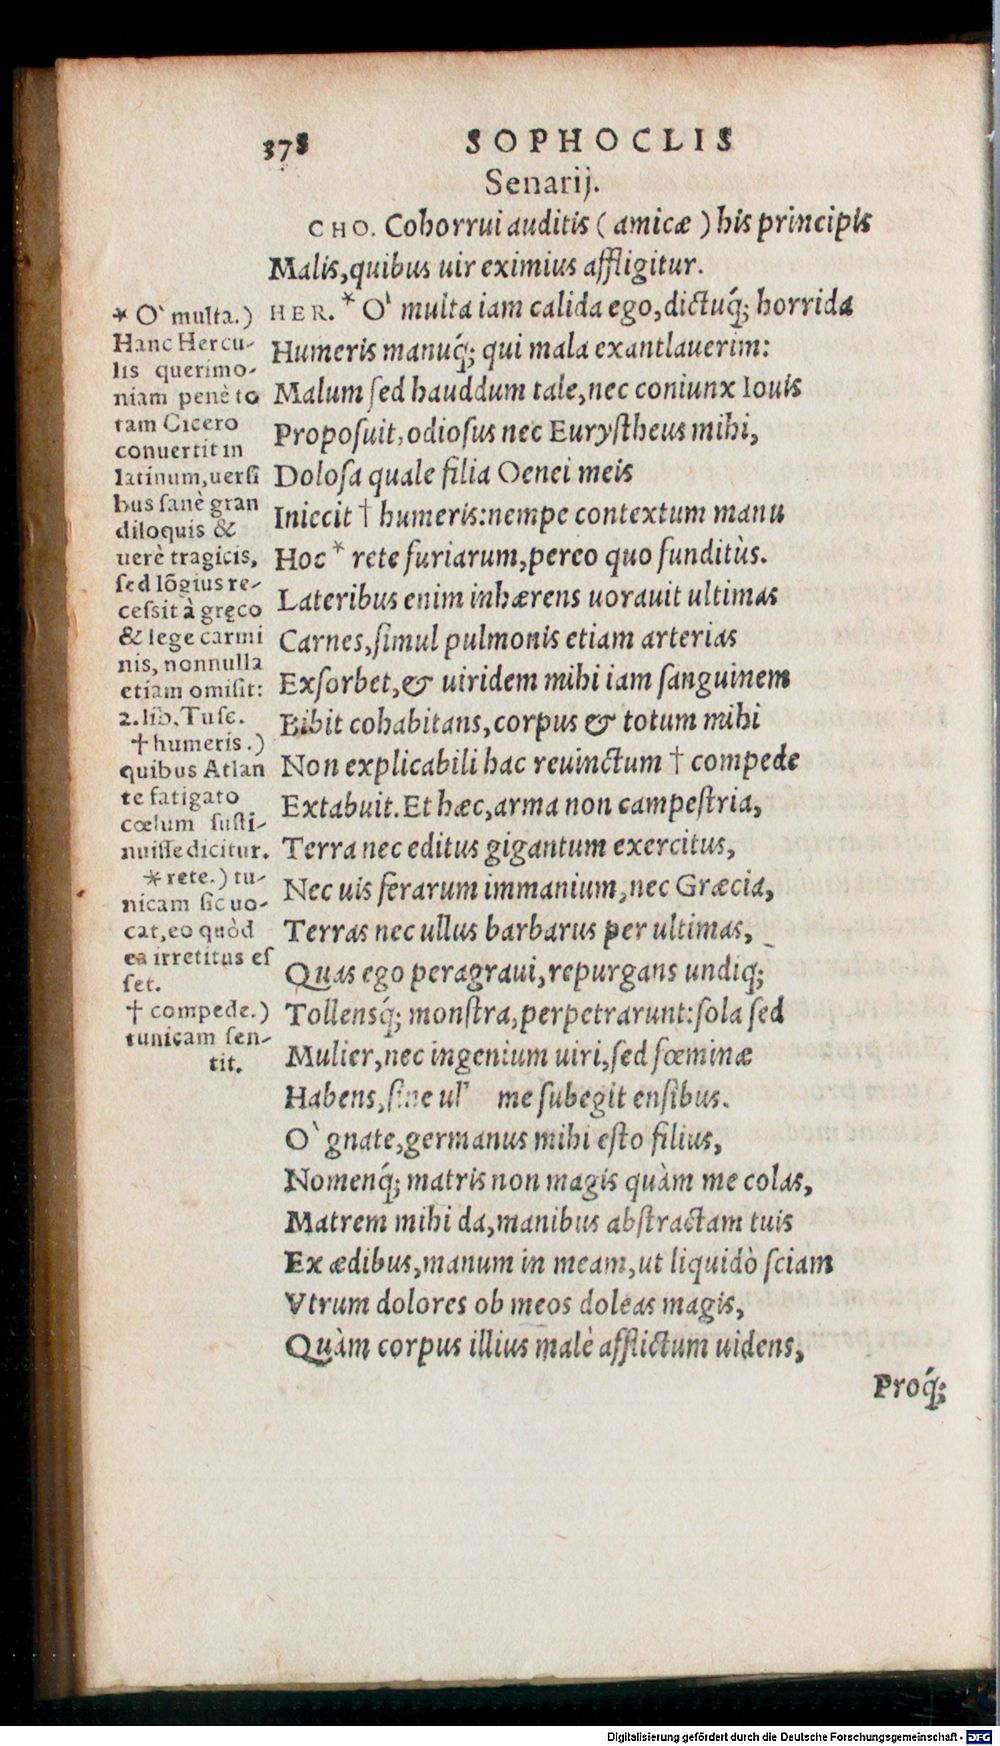 378 SOPHOCLIS
Senarij.
CHO. Cohorrui auditis (amicæ) his principis
Malis, quibus uir eximius affligitur.
HER. * O` multa iam calida ego, dictuq́; horrida
Humeris manuq́; qui mala exantlauerim:
Malum sed hauddum tale, nec coniunx Iouis
Proposuit, odiosus nec Eurystheus mihi,
Dolosa quale filia Oenei meis
Iniecit † humeris: nempe contextum manu
Hoc * rete furiarum, pereo quo funditùs.
Lateribus enim inhærens uorauit ultimas
Carnes, simul pulmonis etiam arterias
Exsorbet, & uiridem mihi iam sanguinem
Bibit cohabitans, corpus & totum mihi
Non explicabili hac reuinctum † compede
Extabuit. Et hæc, arma non campestria,
Terra nec editus gigantum exercitus,
Nec uis ferarum immanium, nec Græcia,
Terras nec ullus barbarus per ultimas,
Quas ego peragraui, repurgans undiq;
Tollensq́; monstra, perpetrarunt: sola sed
Mulier, nec ingenium uiri, sed fœminæ
Habens, sine ul me subegit ensibus.
O` gnate, germanus mihi esto filius,
Nomenq́; matris non magis quàm me colas,
Matrem mihi da, manibus abstractam tuis
Ex ædibus, manum in meam, ut liquidò sciam
Vtrum dolores ob meos doleas magis,
Quàm corpus illius malè afflictum uidens,
Proq́;
* O` multa.)
Hanc Hercu-
lis querimo-
niam penè to
tam Cicero
conuertit in
latinum, uersi
bus sanè gran
diloquis &
uerè tragicis,
sed lõgius re-
cessit à gręco
& lege carmi
nis, nonnulla
etiam omisit:
2. lib. Tusc.
† humeris.)
quibus Atlan
te fatigato
cœlum susti-
nuisse dicitur.
* rete.) tu-
nicam sic uo-
cat, eo quòd
ea irretitus es
set.
† compede.)
tunicam sen-
tit.
Digitalisierung gefördert durch die Deutsche Forschungsgemeinschaft - DFG